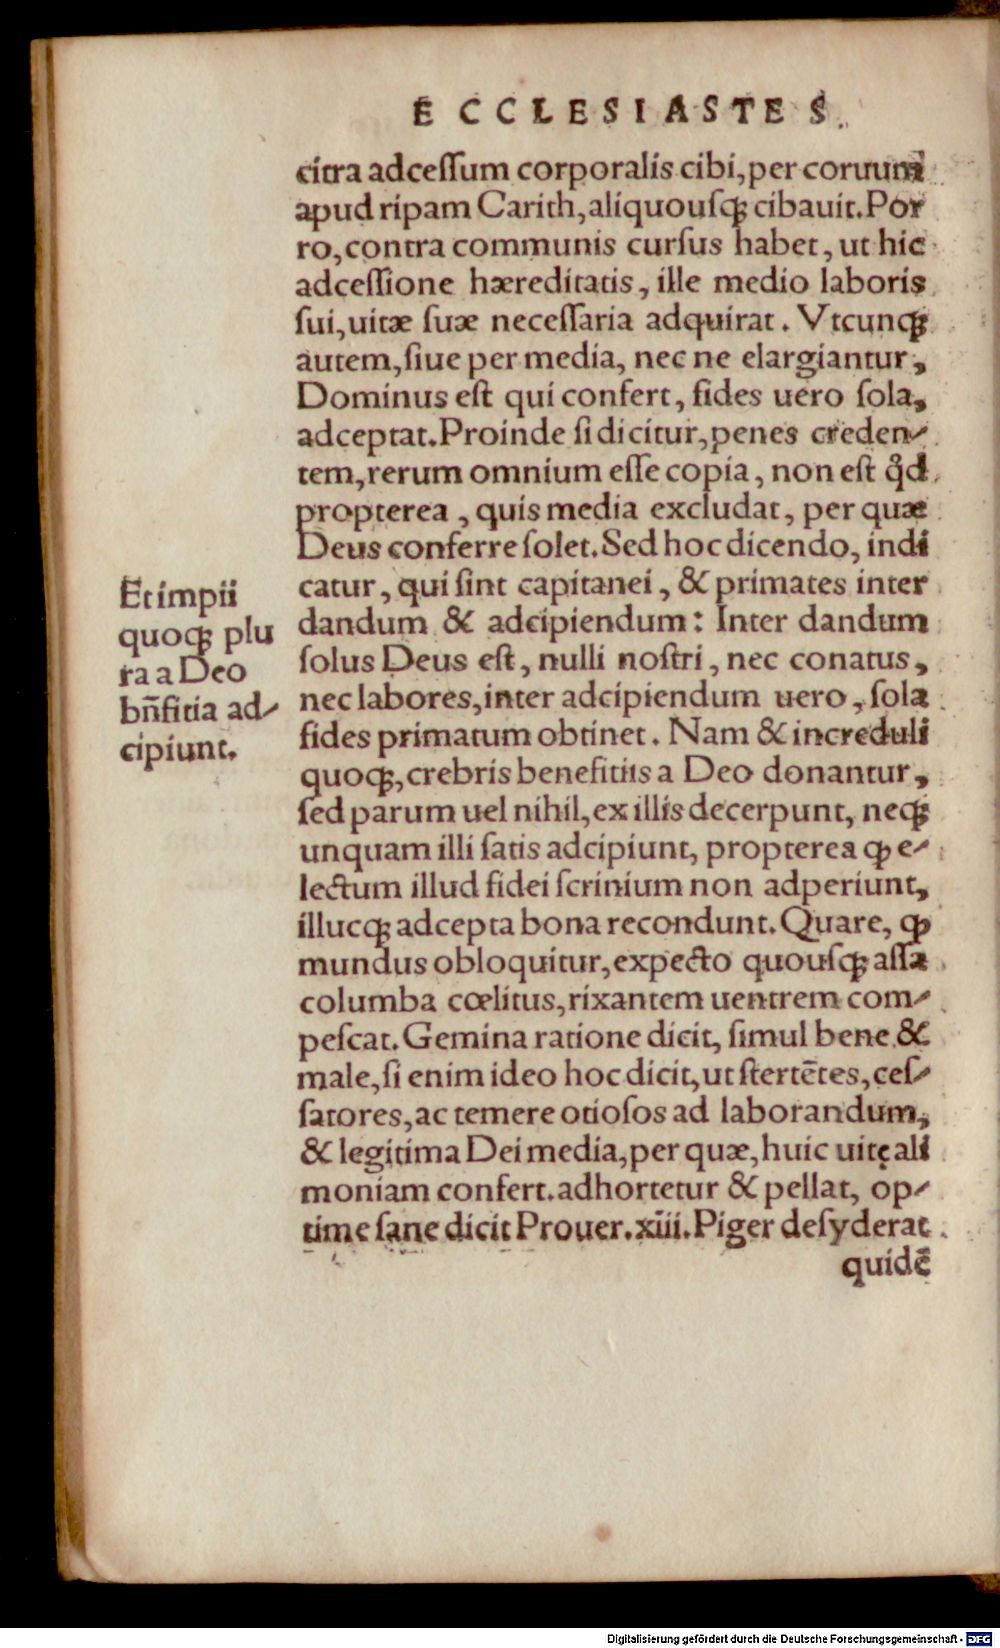 ECCLESIASTES.
citra adceſſum corporalis cibi, per coruum
apud ripam Carith, aliquouſqꝫ cibauit. Por
ro, contra communis curſus habet, ut hic
adceſſione hæreditatis, ille medio laboris
ſui, uitæ ſuæ neceſſaria adquirat. Vtcunqꝫ
autem, ſiue per media, nec ne elargiantur,
Dominus eſt qui confert, fides uero ſola,
adceptat. Proinde ſi dicitur, penes creden⸗
tem, rerum omnium eſſe copia, non eſt qd̊
propterea, quis media excludat, per quæ
Deus conferre ſolet. Sed hoc dicendo, indi
catur, qui ſint capitanei, & primates inter
dandum & adcipiendum: Inter dandum
ſolus Deus eſt, nulli noſtri, nec conatus,
nec labores, inter adcipiendum uero, ſola
fides primatum obtinet. Nam & increduli
quoqꝫ, crebris benefitiis a Deo donantur,
ſed parum uel nihil, ex illis decerpunt, neqꝫ
unquam illi ſatis adcipiunt, propterea ꝙ e⸗
lectum illud fidei ſcrinium non adperiunt,
illucqꝫ adcepta bona recondunt. Quare, ꝙ
mundus obloquitur, expecto quouſqꝫ aſſa
columba cœlitus, rixantem uentrem com⸗
peſcat. Gemina ratione dicit, ſimul bene &
male, ſi enim ideo hoc dicit, ut ſtertētes, ceſ⸗
ſatores, ac temere otioſos ad laborandum,
& legitima Dei media, per quæ, huic uitę ali
moniam confert. adhortetur & pellat, op⸗
time ſane dicit Prouer. xiii. Piger deſyderat
quidē
Et impii
quoqꝫ plu
ra a Deo
bn̄fitia ad⸗
cipiunt.
Digitalisierung gefördert durch die Deutsche Forschungsgemeinschaft - DFG